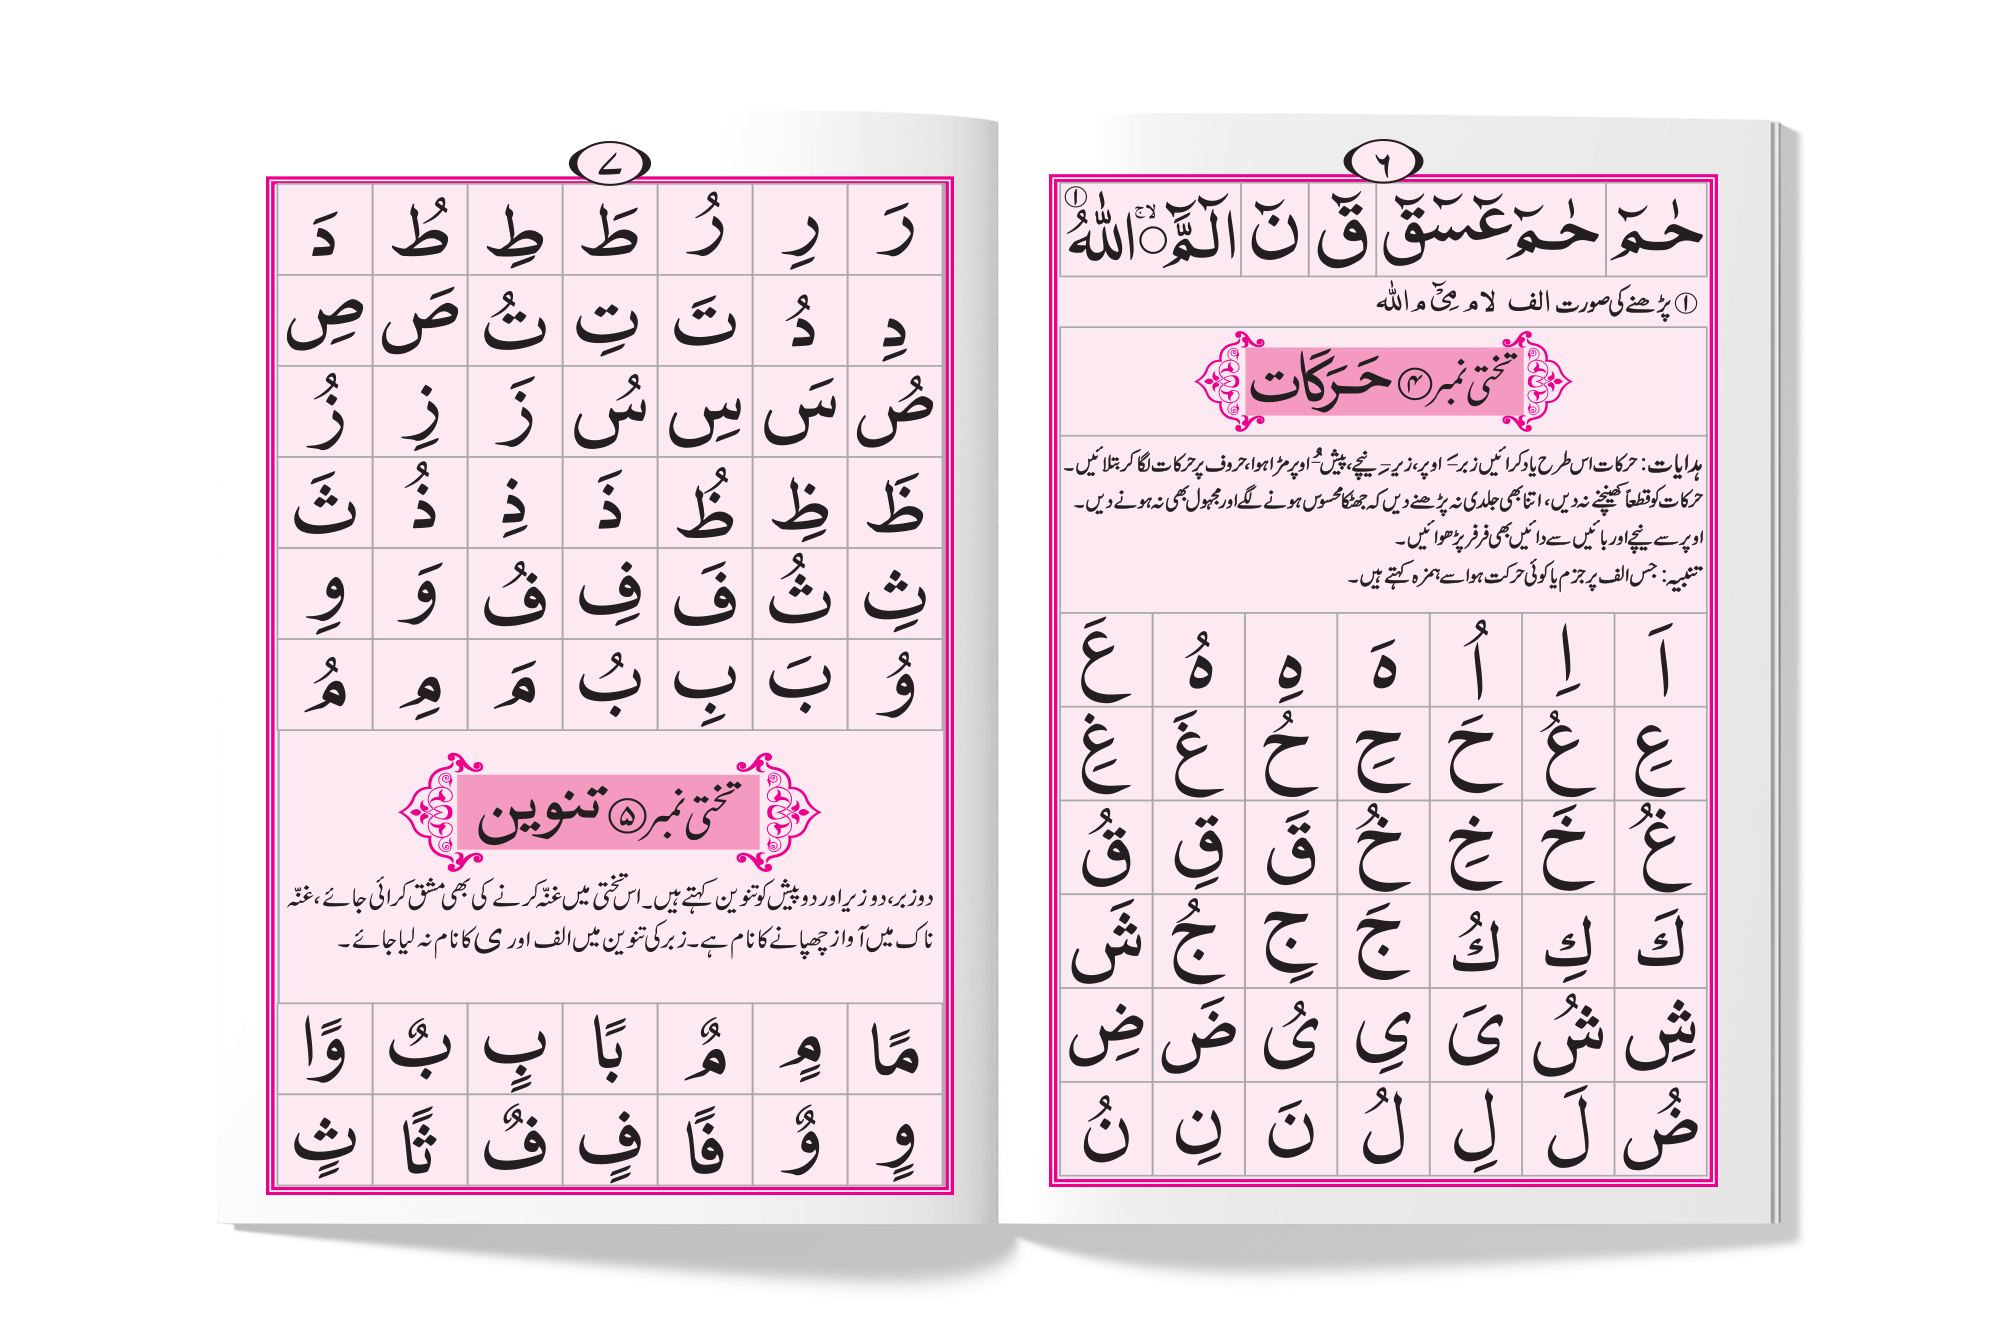 ۶
حٰمٓ حٰمٓ عٓسٓقٓ قٓ نٓ الٓمَّٓ ۙ۝ اللّٰهُ ①
① پڑھنے کی صورت الف لام مِیْٓ م اللّٰہ
تختی نمبر ④ حَرَكَات
ہدایات: حرکات اس طرح یاد کرائیں زبر ـَ اوپر، زیر ـِ نیچے، پیش ـُ اوپر مڑا ہوا، حروف پر حرکات لگا کر بتلائیں۔
حرکات کو قطعاً کھینچنے نہ دیں، اتنا بھی جلدی نہ پڑھنے دیں کہ جھٹکا محسوس ہونے لگے اور مجہول بھی نہ ہونے دیں۔
اوپر سے نیچے اور بائیں سے دائیں بھی فرفر پڑھوائیں۔
تنبیہ: جس الف پر جزم یا کوئی حرکت ہو اسے ہمزہ کہتے ہیں۔
اَ اِ اُ هَ هِ هُ عَ
عِ عُ حَ حِ حُ غَ غِ
غُ خَ خِ خُ قَ قِ قُ
كَ كِ كُ جَ جِ جُ شَ
شِ شُ یَ یِ یُ ضَ ضِ
ضُ لَ لِ لُ نَ نِ نُ
۷
رَ رِ رُ طَ طِ طُ دَ
دِ دُ تَ تِ تُ صَ صِ
صُ سَ سِ سُ زَ زِ زُ
ظَ ظِ ظُ ذَ ذِ ذُ ثَ
ثِ ثُ فَ فِ فُ وَ وِ
وُ بَ بِ بُ مَ مِ مُ
تختی نمبر ⑤ تنوین
دو زبر، دو زیر اور دو پیش کو تنوین کہتے ہیں۔ اس تختی میں غنّہ کرنے کی بھی مشق کرائی جائے، غنّہ
ناک میں آواز چھپانے کا نام ہے۔ زبر کی تنوین میں الف اور ی کا نام نہ لیا جائے۔
مًا مٍ مٌ بًا بٍ بٌ وًا
وٍ وٌ فًا فٍ فٌ ثًا ثٍ